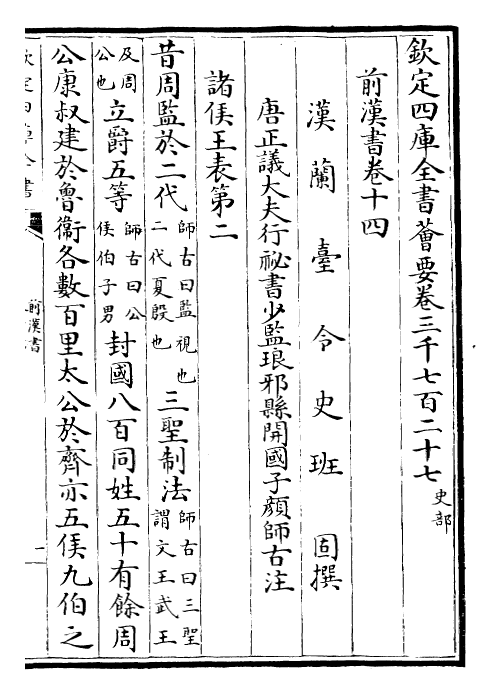 欽定四庫全書薈要卷三千七百二十七 史部
前漢書卷十四
漢蘭臺令史班固撰
唐正議大夫行祕書少監琅邪縣開國子顏師古注
諸侯王表第二
昔周監於二代師古曰監視也二代夏殷也三聖制法師古曰三聖謂文王武王
及周公也立爵五等師古曰公侯伯子男封國八百同姓五十有餘周
公康叔建於魯衞各數百里太公於齊亦五侯九伯之
欽定四庫全書
前漢書
一